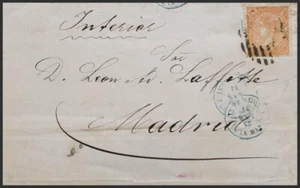 Interior
Sor
D. Leon A. Laffitte
Madrid